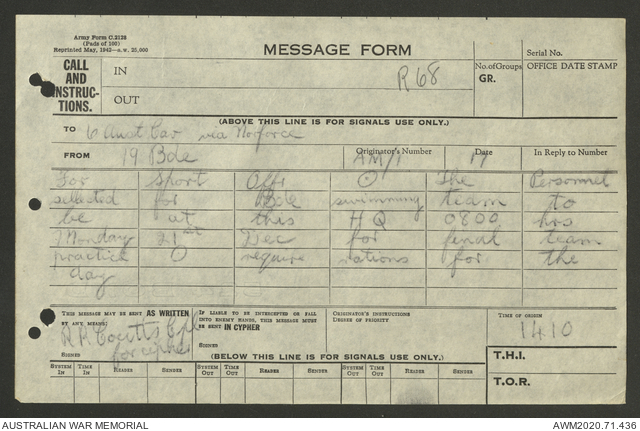 Army Form C.2128
(Pads of 100)
Reprinted May, 1942
MESSAGE FORM
Serial No.
CALL AND INSTRUC-TIONS.
IN
R68
No. of Groups
GR.
OFFICE DATE STAMP
OUT
(ABOVE THIS LINE IS FOR SIGNALS USE ONLY.)
TO 6 Aust Cav via Norforce
FROM 19 Bde
Originator's Number AM/1
Date 17
In Reply to Number
For Sport Offr O The Personnel
selected for Bde swimming team to
be at this HQ 0800 hrs
Monday 21st Dec for final team
practice O require rations for the
day
THIS MESSAGE MAY BE SENT AS WRITTEN BY ANY MEANS.
IF LIABLE TO BE INTERCEPTED OR FALL INTO ENEMY HANDS, THIS MESSAGE MUST BE SENT IN CYPHER
ORIGINATOR'S INSTRUCTIONS
DEGREE OF PRIORITY
TIME OF ORIGIN
1410
SIGNED
SIGNED
(BELOW THIS LINE IS FOR SIGNALS USE ONLY.)
T.H.I.
T.O.R.
SYSTEM IN TIME IN READER SENDER SYSTEM OUT TIME OUT READER SENDER SYSTEM OUT TIME OUT READER SENDER
AUSTRALIAN WAR MEMORIAL
AWM2020.71.436